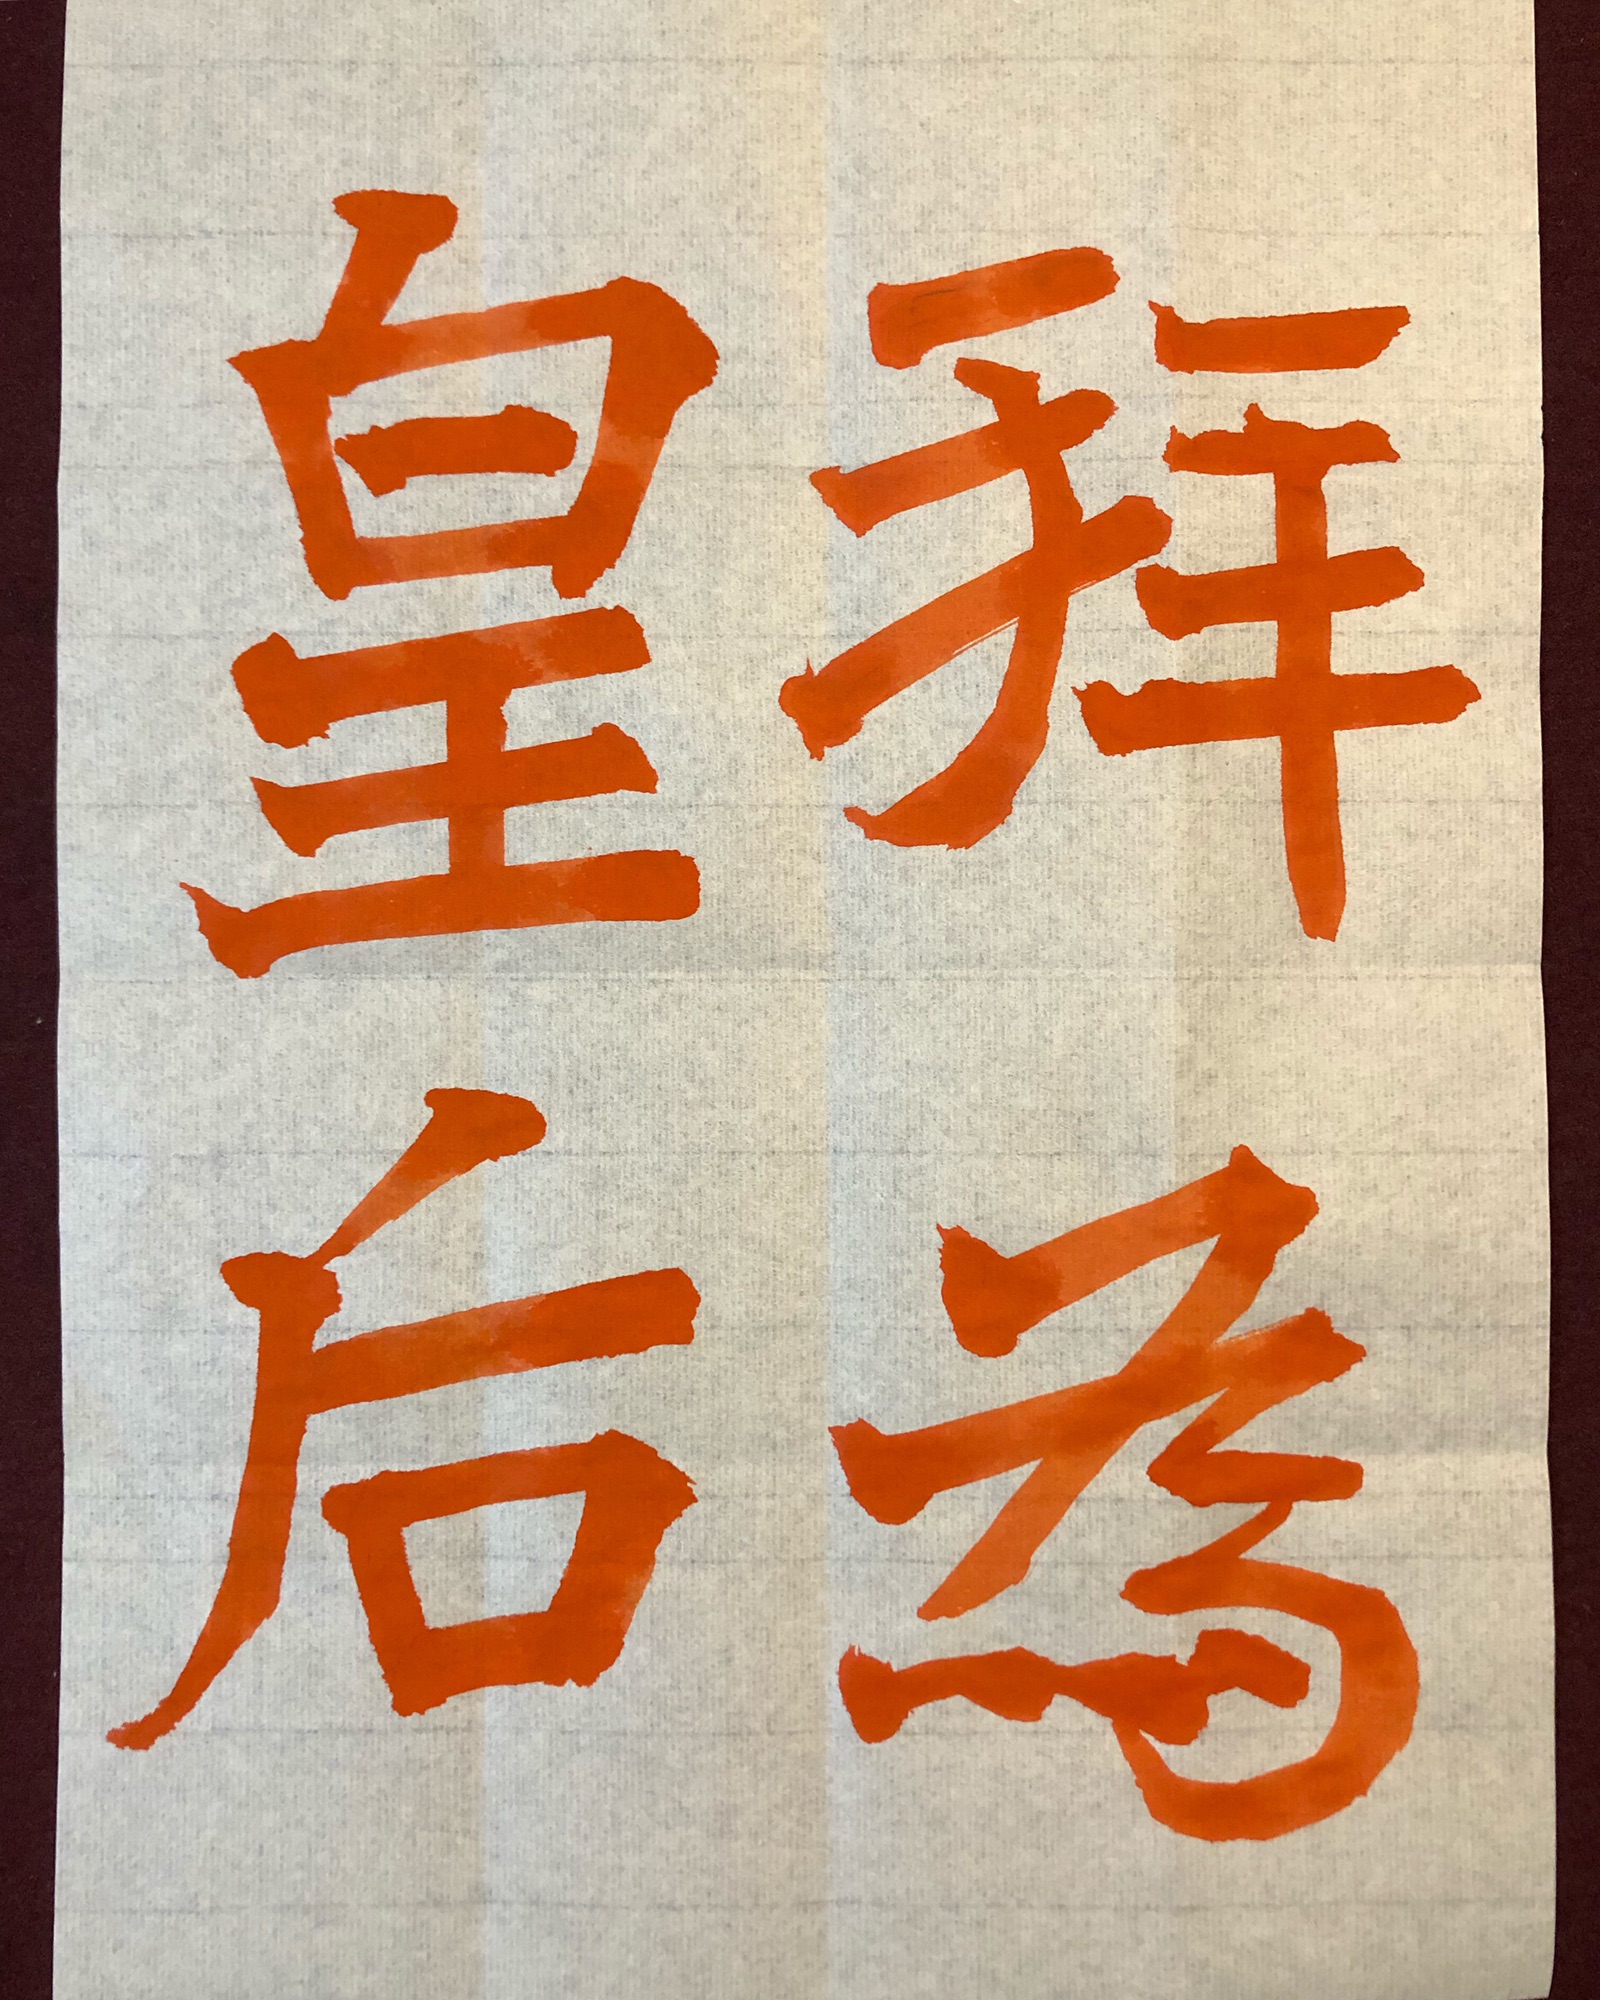 拜為
皇后